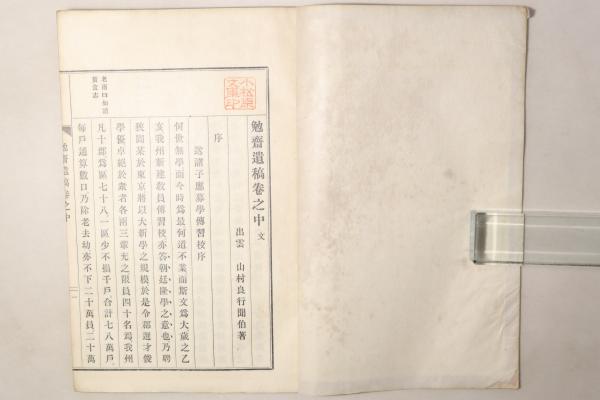 勉齋遺稿卷之中 文
出雲 山村良行聞伯著
序
送諸子應募學傳習校序
何世無學而今時爲最何道不業而斯文爲大歲之乙
亥我州新建教員傳習校亦答朝廷隆學之意也乃聘
挾間某於東京將以大新學之規模於是令郡選才俊
學優卓絕於衆者各兩三輩充之限員四十名焉我州
凡十郡爲區七十八一區少不損千戶合計七八萬戶
每戶通算數口乃除老去幼亦不下二十萬員二十萬
老雨曰如讀
食貨志
勉齋遺稿卷之中